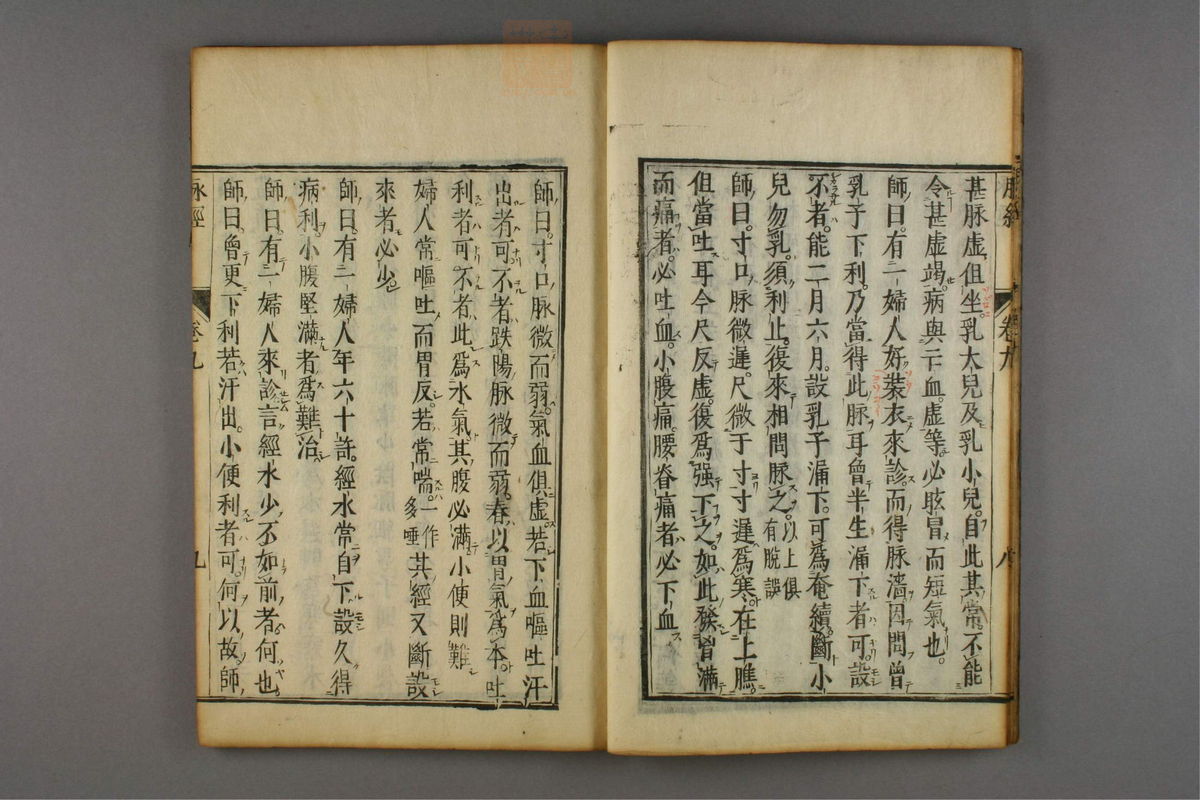 脉經
卷九
八
甚脉虚但坐乳大兒及乳小兒自此其常不能
令甚虚竭病與亡血虚等必眩冒而短氣也
師曰有一婦人好裝衣來診而得脉濇因問曾
乳子下利乃當得此脉耳曾半生漏下者可設
不者能二月六月設乳子漏下可爲奄續斷小
兒勿乳須利止復來相問脉之以上俱有脱誤
師曰寸口脉微遲尺微于寸寸遲爲寒在上膲
但當吐耳今尺反虚復爲强下之如此發胷滿
而痛者必吐血小腹痛腰脊痛者必下血
師曰寸口脉微而弱氣血俱虚若下血嘔吐汗
出者可不者趺陽脉微而弱春以胃氣爲本吐
利者可不者此爲水氣其腹必滿小便則難
婦人常嘔吐而胃反若常喘一作多唾其經又斷設
來者必少
師曰有一婦人年六十許經水常自下設久得
病利小腹堅滿者爲難治
師曰有一婦人來診言經水少不如前者何也
師曰曾更下利若汗出小便利者可何以故師
脉經
卷九
九